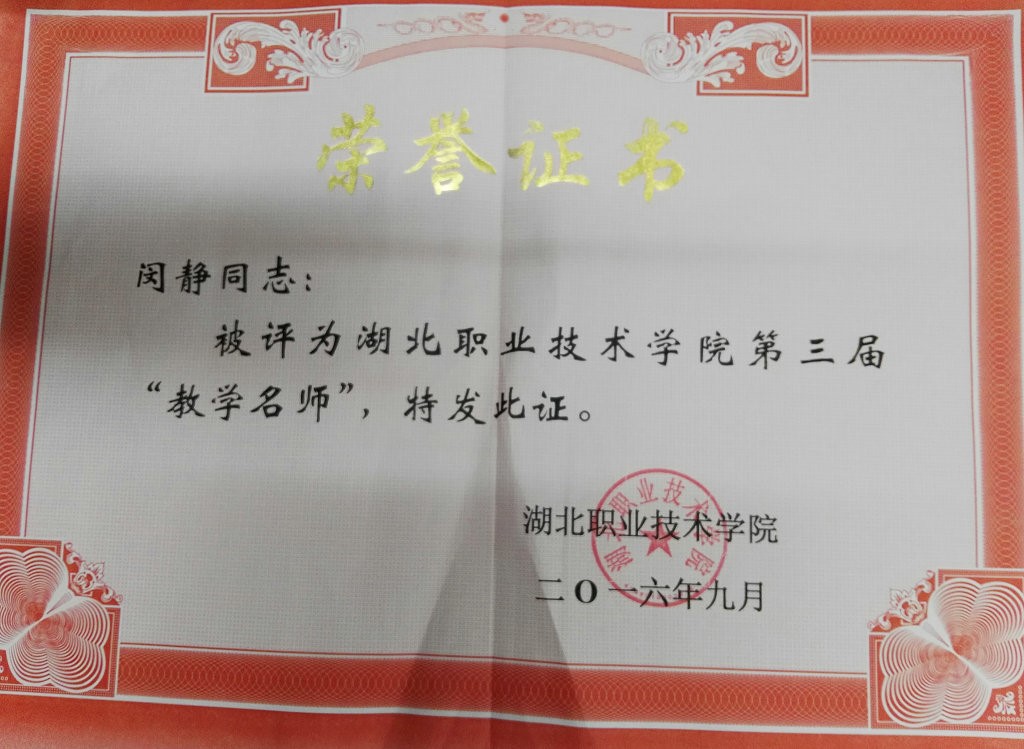 荣誉证书
闵静同志：
被评为湖北职业技术学院第三届
“教学名师”，特发此证。
湖北职业技术学院
湖北职业技术学院
二O一六年九月